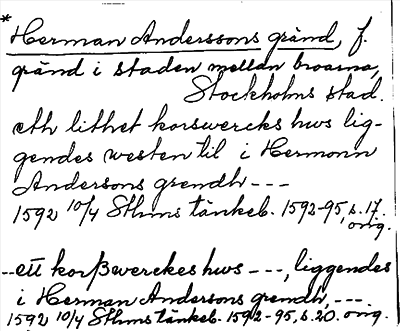 * Herman Anderssons gränd, f.
gränd i staden mellan broarna,
Stockholms stad.
eth lithet korswercks hws lig-
gendes westen til i Hermonn
Andersons grendh - - -
1592 10/4 Sthms tänkeb. 1592-95, s. 17.
orig.
-- ett korßwerckes hws - - -, liggendes
i Herman Andersons grendh, - - -.
1592 10/4 Sthms tänkeb. 1592-95, s. 20. orig.